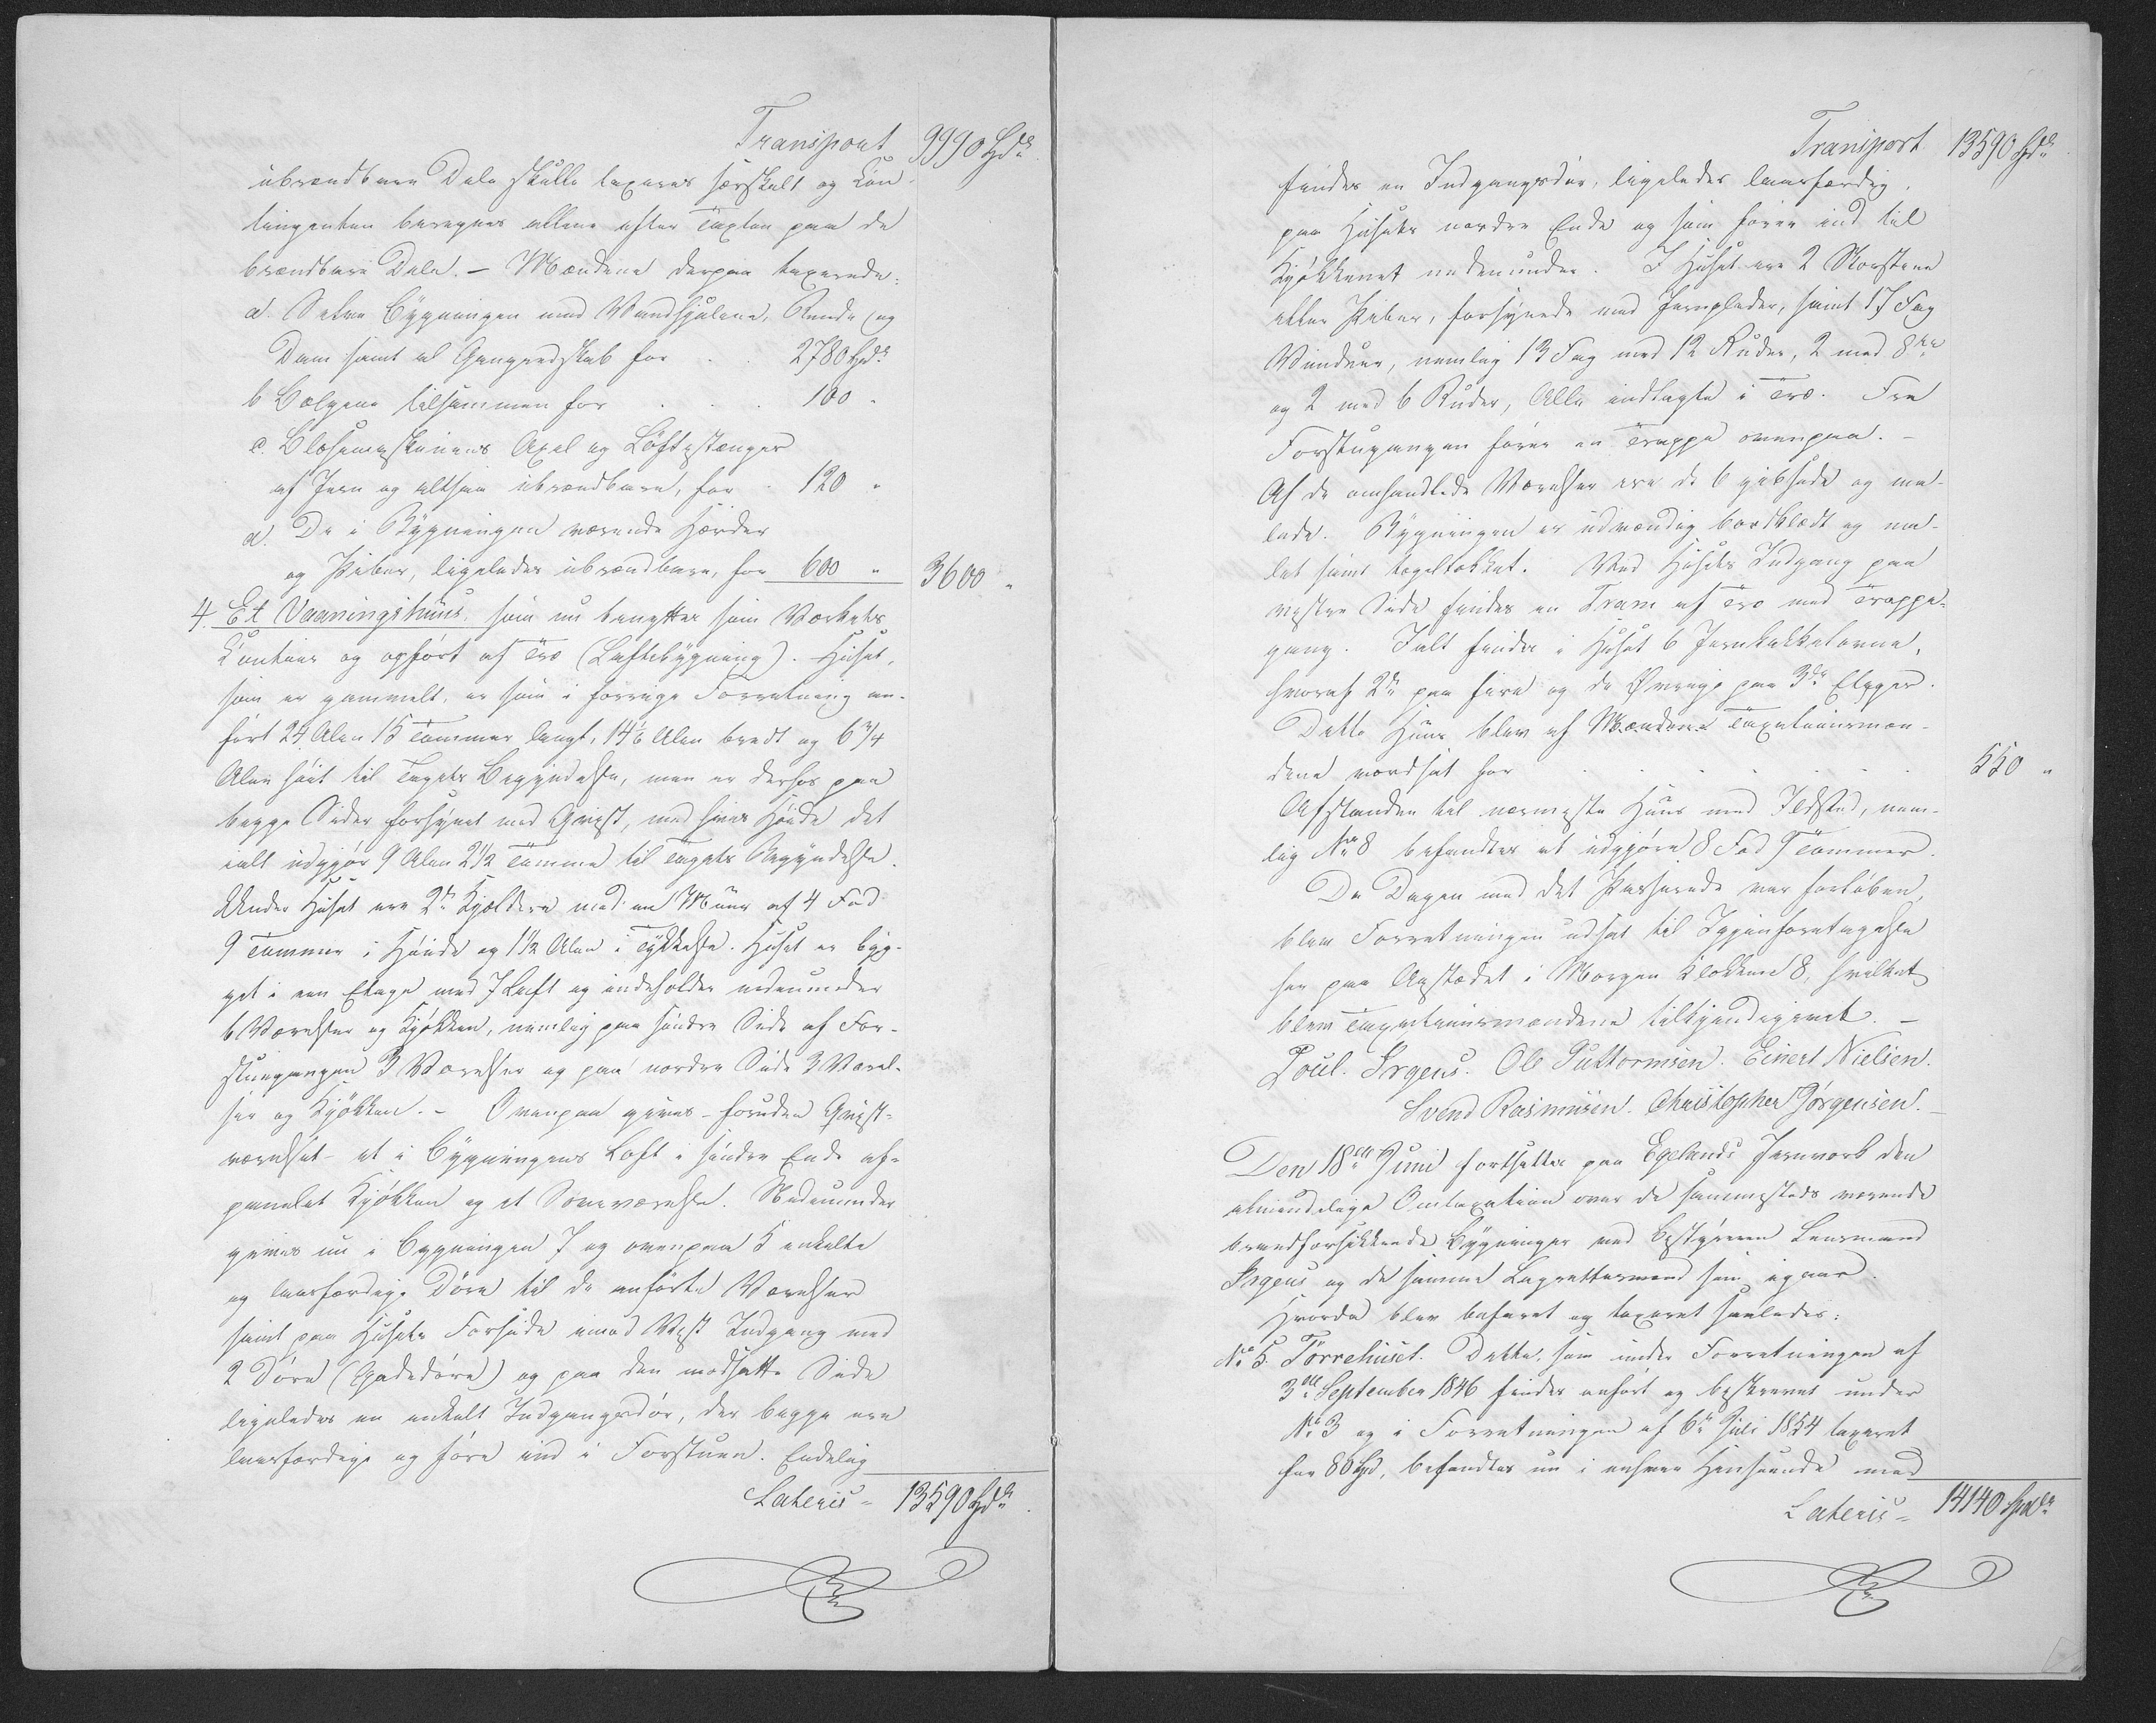 Transport 9990 Spdlr
ubrændbare Dele skulle taxeres særskilt og Con-
tingenten beregnes allene efter Taxten paa de
brændbare Dele. – Mændene derpaa taxerede:
a. Selve Bygningen med Vandhjulene, Rende og
Dam samt al Gangredskab for . . 2780 Spdlr
b Bælgene tilsammen for . . . 100 "
c. Blæsemaskinens Axel og Løftestænger
af Jern og altsaa ubrændbare, for . 120 "
d. De i Bygningen værende Hærder
og Piber, ligeledes ubrændbare, for 600 " 3600 "
4. Et Vaaningshuus, som nu benyttes som Værkets
Contoir og opført af Træ (Laftebygning). Huset,
som er gammelt, er som i forrige Forretning an-
ført 24 Alen 15 Tommer langt, 14½ Alen bredt og 6¾
Alen høit til Tagets Begyndelse, men er derhos paa
begge Sider forsynet med Qvist, med hvis Høide det
ialt udgjør 9 Alen 21½ Tomme til Tagets Begyndelse.
Under Huset ere 2de Kjældere med en Muur af 4 Fod
9 Tommer i Høide og 1½ Alen i Tykkelse. Huset er byg-
get i een Etage med 7 Laft og indeholder nedenunder
6 Værelser og Kjøkken, nemlig paa søndre Side af For-
stuegangen 3 Værelser og paa nordre Side 3 Værel-
ser og Kjøkken. – Ovenpaa gives – foruden Qvist-
værelset – et i Bygningens Loft i søndre Ende af-
panelet Kjøkken og et Soveværelse. Nedenunder
gives nu i Bygningen 7 og ovenpaa 5 enkelte
og laasfærdige Døre til de anførte Værelser
samt paa Husets Forside imod Vest Indgang med
2 Døre (Gadedøre) og paa den modsatte Side
ligeledes en enkelt Indgangsdør, der begge ere
laasfærdige og føre ind i Forstuen. Endelig
Lateris = 13590 Spdlr
Transport 13590 Spdlr
findes en Indgangsdør, ligeledes laasfærdig,
paa Husets nordre Ende og som fører ind til
Kjøkkenet nedenunder. I Huset ere 2 Skorstene
eller Piber, forsynede med Jernplader, samt 17 Fag
Vinduer, nemlig 13 Fag med 12 Ruder, 2 med 8te
og 2 med 6 Ruder, Alle indlagte i Træ. Fra
Forstugangen fører en Trappe ovenpaa. –
Af de omhandlede Værelser ere de 6 gibsede og ma-
lede. Bygningen er udvendig bordklædt og ma-
let samt tegltækket. Ved Husets Indgang paa
vestre Side findes en Tram af Træ med Trappe-
gang. Ialt findes i Huset 6 Jernkakkelovne,
hvoraf 2de paa fire og de Øvrige paa 3de Etager.
Dette Huus blev af Mændene Taxationsmæn-
dene værdsat for . . . . . 550 "
Afstanden til nærmeste Huus med Ildsted, nem-
lig No 8 befandtes at udgjøre 8 Fod 9 Tommer.
Da Dagen med det Passerede var forløben,
blev Forretningen udsat til Igjenforetagelse
her paa Aastedet i Morgen Klokken 8, hvilket
blev Taxationsmændene tilkjendegivet. –
Poul. Irgens. Ole Guttormsen. Einert Nielsen.
Svend Rasmusen. Christopher Jørgensen. –
Den 18de Juni fortsattes paa Egelands Jernværk den
almindelige Omtaxation over de sammesteds værende
brandforsikkrede Bygninger ved Bestyreren Lensmand
Irgens og de samme Lagrettesmænd som igaar.
Hvorda blev befaret og taxeret saaledes:
No 5. Tørrehuset. Dette, som under Forretningen af
3die September 1846 findes anført og beskrevet under
No 3 og i Forretningen af 6te Juli 1854 taxeret
for 80 Spd, befandtes nu i enhver Henseende med
Lateris = 14140 Spdlr